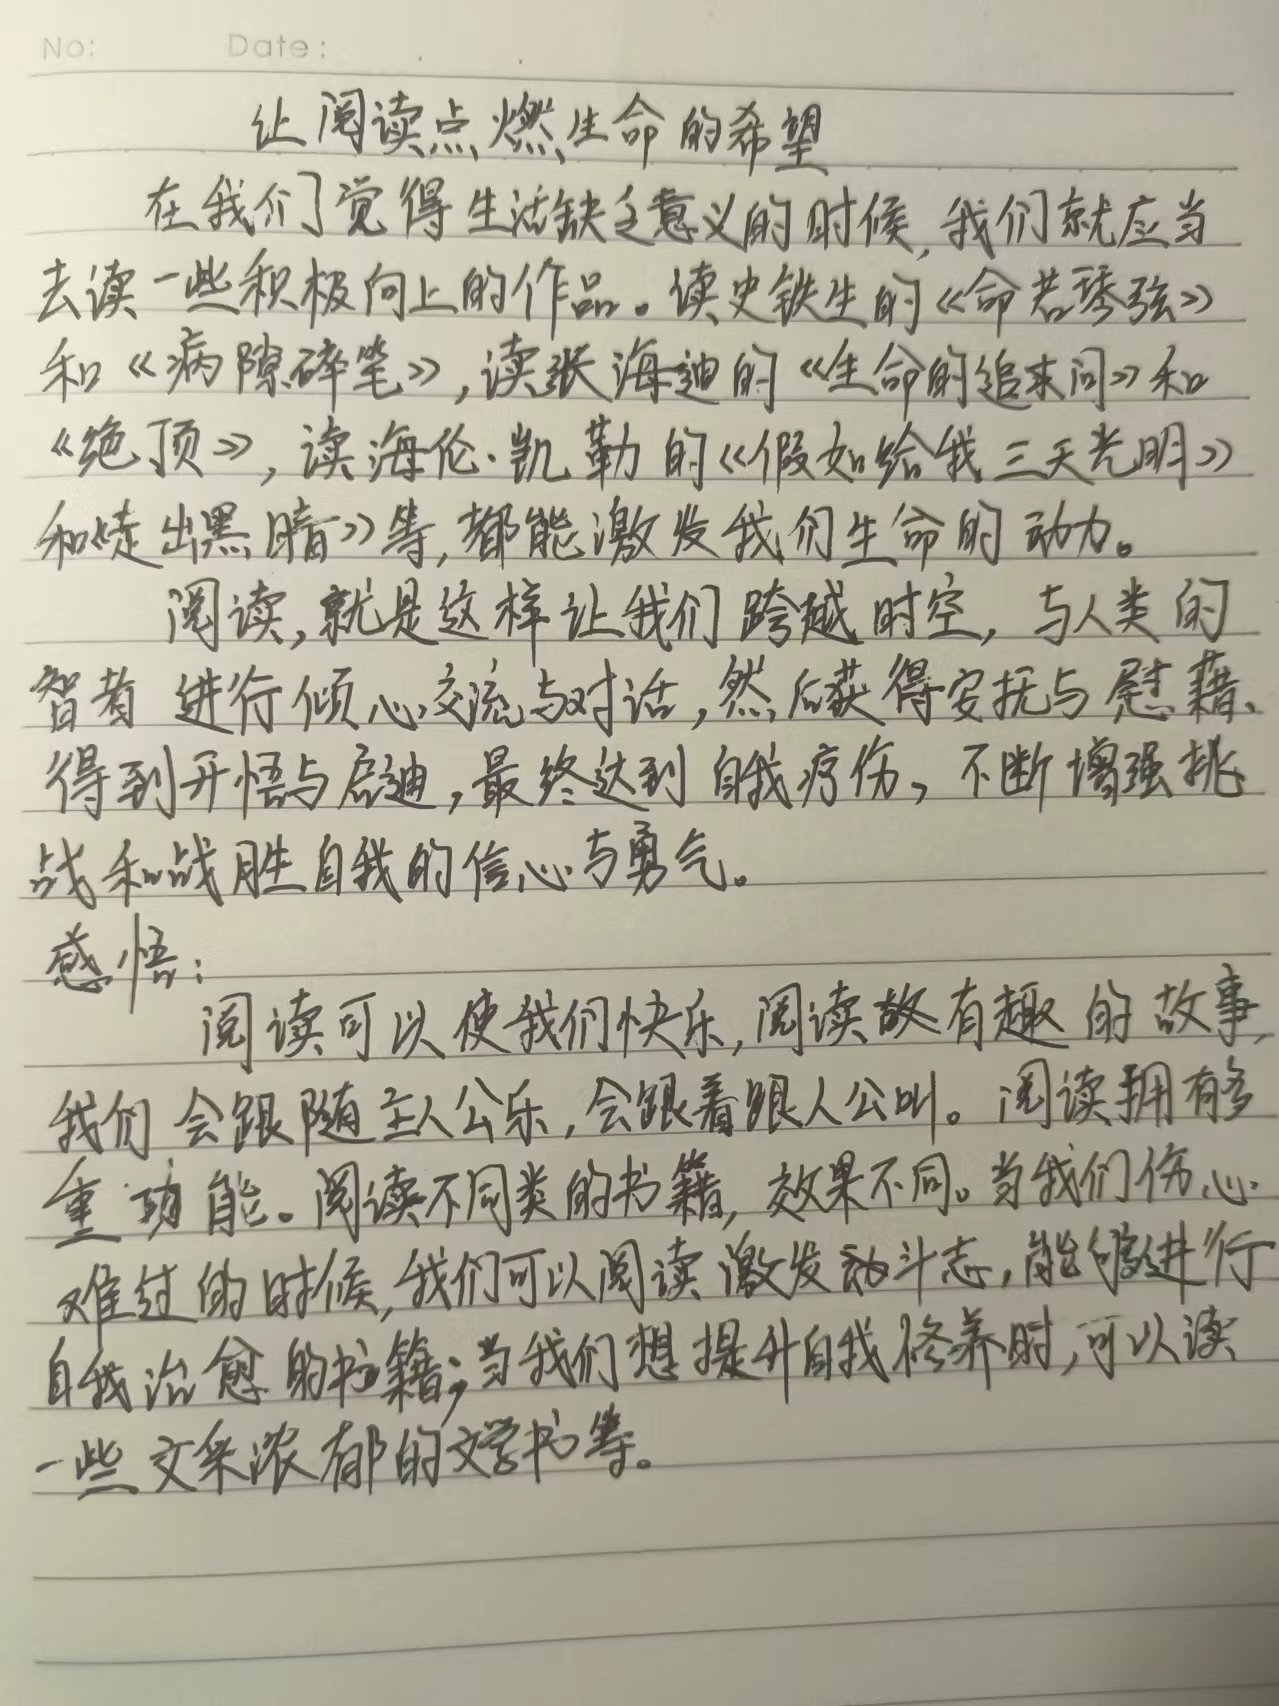 No:      Date:
让阅读点燃生命的希望
在我们觉得生活缺乏意义的时候,我们就应当
去读一些积极向上的作品。读史铁生的《命若琴弦》
和《病隙碎笔》,读张海迪的《生命的追问》和
《绝顶》,读海伦·凯勒的《假如给我三天光明》
和《走出黑暗》等,都能激发我们生命的动力。
阅读,就是这样让我们跨越时空,与人类的
智者进行倾心交流与对话,然后获得安抚与慰藉、
得到开悟与启迪,最终达到自我疗伤,不断增强挑
战和战胜自我的信心与勇气。
感悟:
阅读可以使我们快乐,阅读有趣的故事,
我们会跟随主人公乐,会跟着跟人公叫。阅读拥有多
重功能。阅读不同类的书籍,效果不同。当我们伤心
难过的时候,我们可以阅读激发动斗志,能够进行
自我治愈的书籍;当我们想提升自我修养时,可以读
一些文采浓郁的文学书等。